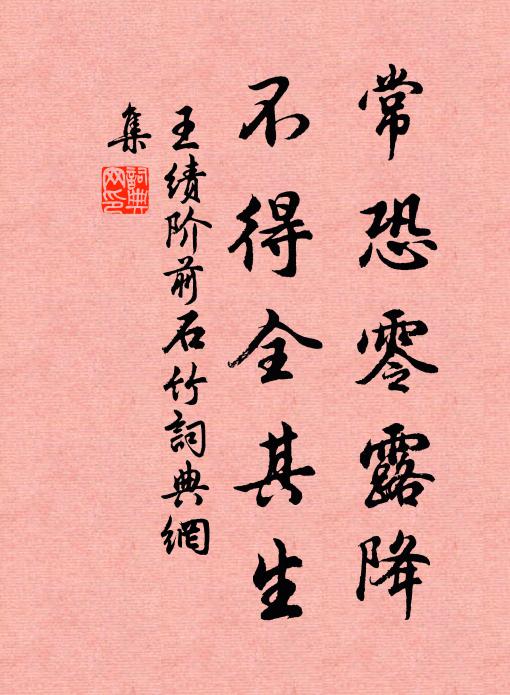 常恐零露降
不得全其生
王绩阶前石竹詞典網
集
詞典
网印